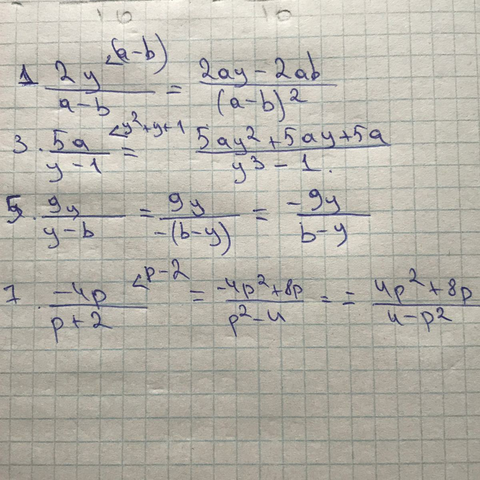 1 2y/(a-b) <(a-b) = (2ay-2ab)/(a-b)²
3. 5a/(y-1) <y²+y+1 = (5ay²+5ay+5a)/(y³-1).
5. 9y/(y-b) = 9y/(-(b-y)) = -9y/(b-y)
7. -4p/(p+2) <p-2 = (-4p²+8p)/(p²-4) = = (4p²+8p)/(4-p²)